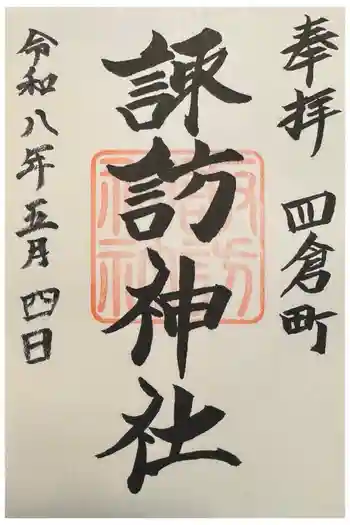 奉拝 四倉町
諏訪神社
令和八年五月四日
諏訪神社